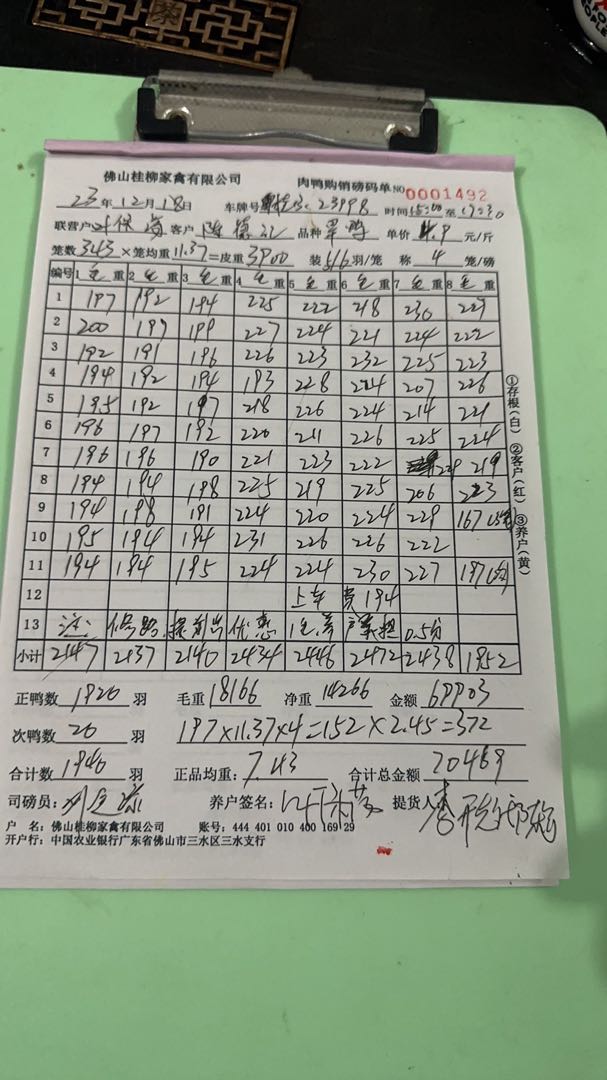 佛山桂柳家禽有限公司 肉鸭购销磅码单 NO 0001492
23年12月18日 车牌号 23998 时间15:00至17:30
联营户 客户 陈德 品种 单价 4.9 元/斤
笼数 343 × 笼均重 11.37 = 皮重 3900 装 5/6 羽/笼 称 4 笼/磅
编号 1 毛重 2 毛重 3 毛重 4 毛重 5 毛重 6 毛重 7 毛重 8 毛重
1 197 192 194 225 222 218 230 227
2 200 197 199 227 224 221 224 222
3 192 191 196 226 223 232 225 223
4 194 192 194 193 228 224 207 226
5 195 192 197 218 226 224 214 221
6 196 197 192 220 211 226 225 224
7 196 196 190 221 223 222 229 219
8 194 194 198 225 219 225 206 223
9 194 198 191 224 220 224 229 167
10 195 194 194 231 226 226 222
11 194 194 195 224 224 230 227 197
12 上车 194
13 注: 优惠 0.5分
小计 2147 2137 2140 2434 2446 2472 2438 1952
正鸭数 1920 羽 毛重 18166 净重 14266 金额 69903
次鸭数 20 羽 197×11.37×4=152×2.45=372
合计数 1940 羽 正品均重: 7.43 合计总金额 70469
司磅员: 养户签名: 提货人
户 名: 佛山桂柳家禽有限公司 账号: 444 401 010 400 169 29
开户行: 中国农业银行广东省佛山市三水区三水支行
①存根(白) ②客户(红) ③养户(黄)